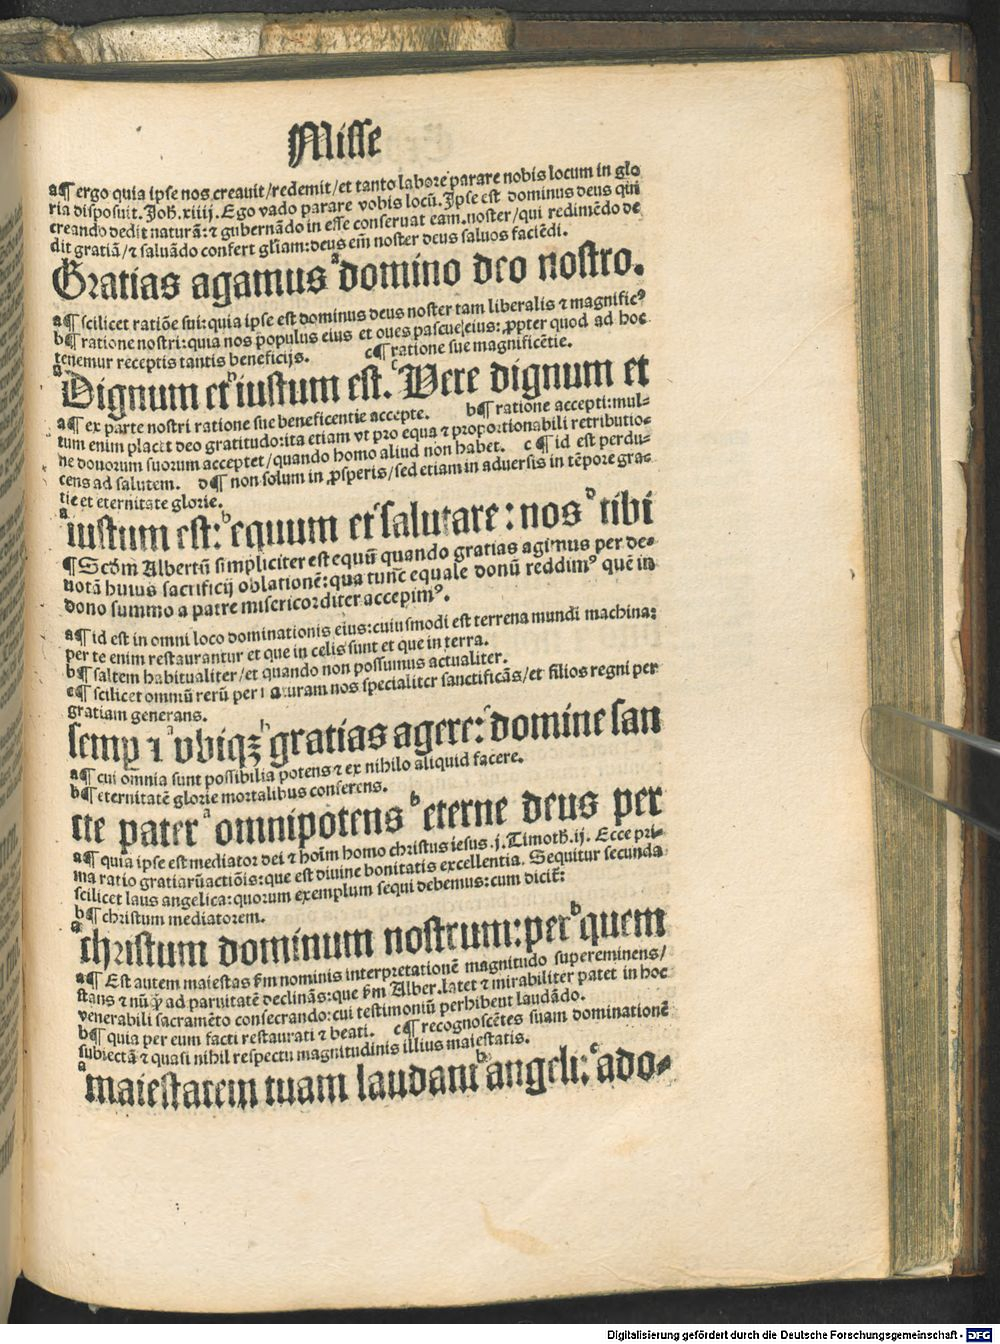 Misse
a¶ ergo quia ipse nos creauit/redemit/et tanto labore parare nobis locum in glo
ria disposuit. Joh̄. xiiij. Ego vado parare vobis locū. Ipse est dominus deus qui
creando dedit naturā: ⁊ gubernādo in esse conseruat eam. noster/qui redimēdo de
dit gratiā/⁊ saluādo confert gl̄iam: deus em̄ noster deus saluos faciēdi.
Gratias agamus ᵃdomino deo nostro.
a¶ scilicet ratiōe sui: quia ipse est dominus deus noster tam liberalis ⁊ magnificꝰ
b¶ ratione nostri: quia nos populus eius et oues pascue eius: ꝓpter quod ad hoc
tenemur receptis tantis beneficijs. c¶ ratione sue magnificētie.
ᵃDignum etᵇ iustum est. ᶜVere dignum et
a¶ ex parte nostri ratione sue beneficentie accepte. b¶ ratione accepti: mul-
tum enim placet deo gratitudo: ita etiam vt pro equa ⁊ proportionabili retributio-
ne donorum suorum acceptet/quando homo aliud non habet. c¶ id est perdu-
cens ad salutem. d¶ non solum in ꝓsperis/sed etiam in aduersis in tēpore gra-
tie et eternitate glorie.
ᵃiustum est: ᵇequum etᶜ salutare: nos ᵈtibi
¶ Scdm̄ Albertū simpliciter est equū quando gratias agimus per de-
uotā huius sacrificij oblationē: qua tunc equale donū reddimꝰ quē in
dono summo a patre misericorditer accepimꝰ.
a¶ id est in omni loco dominationis eius: cuiusmodi est terrena mundi machina:
per te enim restaurantur et que in celis sunt et que in terra.
b¶ saltem habitualiter/et quando non possumus actualiter.
c¶ scilicet omniū rerū per naturam nos specialiter sanctificās/et filios regni per
gratiam generans.
semꝑ ⁊ ᵃvbiqꝫ ᵇgratias agere: ᶜdomine san
a¶ cui omnia sunt possibilia potens ⁊ ex nihilo aliquid facere.
b¶ eternitatē glorie mortalibus conferens.
cte pater ᵃomnipotens ᵇeterne deus per
a¶ quia ipse est mediator dei ⁊ hoīm homo christus iesus. j. Timoth̄. ij. Ecce pri-
ma ratio gratiarū actiōis: que est diuine bonitatis excellentia. Sequitur secunda
scilicet laus angelica: quorum exemplum sequi debemus: cum dicit̄:
b¶ christum mediatorem.
ᵃchristum dominum nostrum: per ᵇquem
a¶ Est autem maiestas ẜm nominis interpretationē magnitudo supereminens/
stans ⁊ nūq̄ ad paruitatē declinās: que ẜm Alber. latet ⁊ mirabiliter patet in hoc
venerabili sacramēto consecrando: cui testimoniū perhibent laudādo.
b¶ quia per eum facti restaurati ⁊ beati. c¶ recognoscētes suam dominationē
subiectā ⁊ quasi nihil respectu magnitudinis illius maiestatis.
ᵃmaiestatem tuam laudant ᵇangeli: ᶜado-
Digitalisierung gefördert durch die Deutsche Forschungsgemeinschaft - DFG